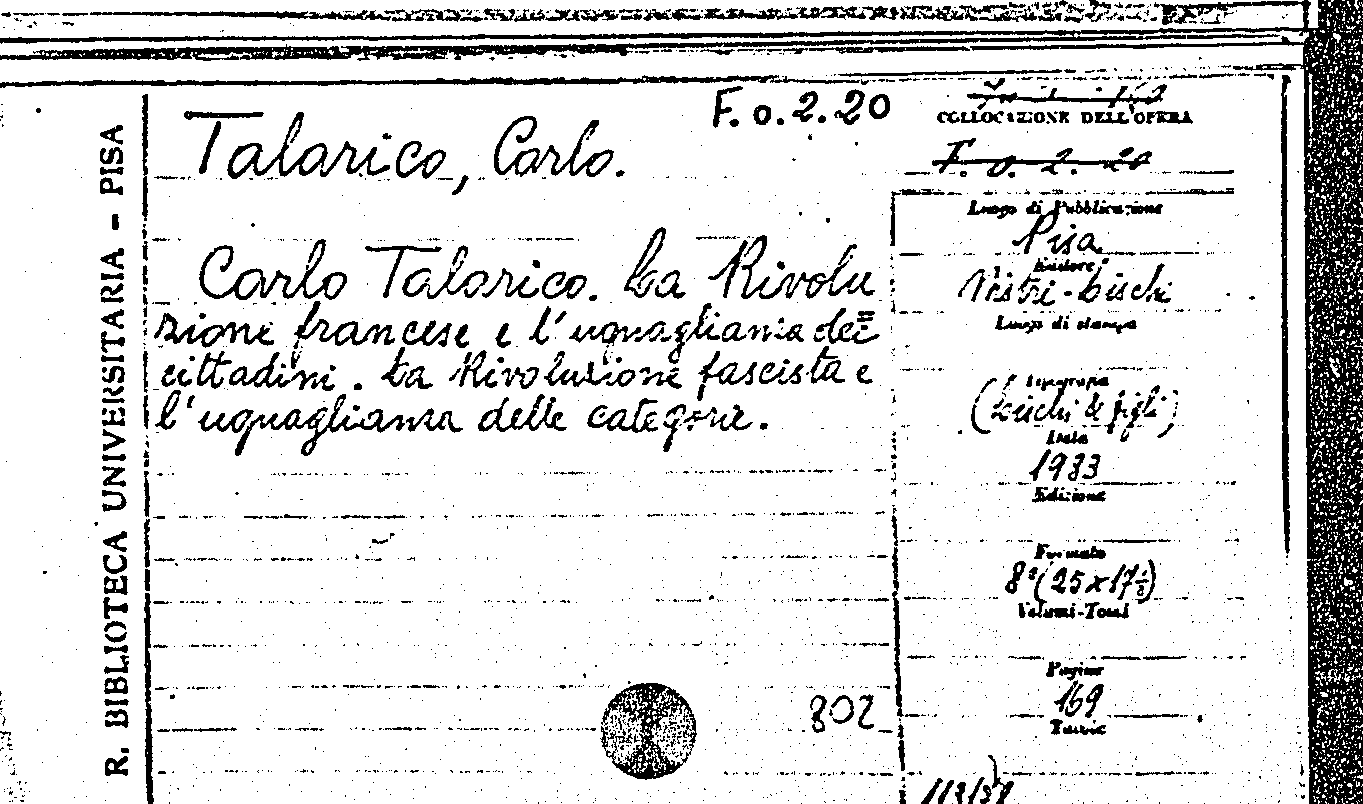 R. BIBLIOTECA UNIVERSITARIA - PISA
F. o. 2. 20
Talarico, Carlo.
Carlo Talarico. La Rivolu
zione francese e l'uguaglianza dei
cittadini. La Rivoluzione fascista e
l'uguaglianza delle categorie.
802
COLLOCAZIONE DELL'OPERA
F. o. 2. 20
Luogo di Pubblicazione
Pisa
Editore
Nistri-Lischi
Luogo di stampa
Tipografia
(Lischi & figli)
Data
1933
Edizione
Formato
8°(25x17½)
Volumi-Tomi
Pagine
169
Tavole